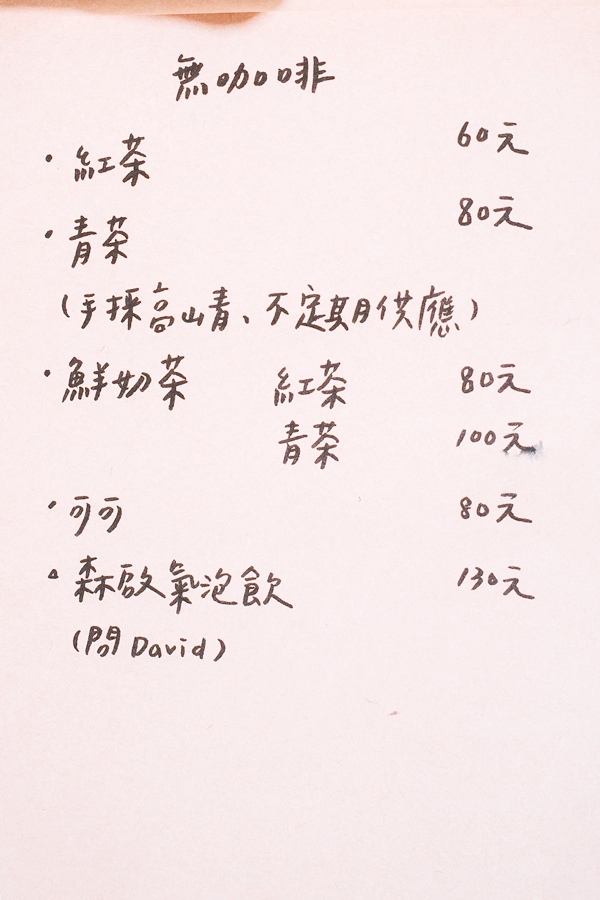 無咖啡
·紅茶 60元
·青茶 80元
(手採高山青、不定期供應)
·鮮奶茶 紅茶 80元
青茶 100元
·可可 80元
·森啟氣泡飲 130元
(問David)